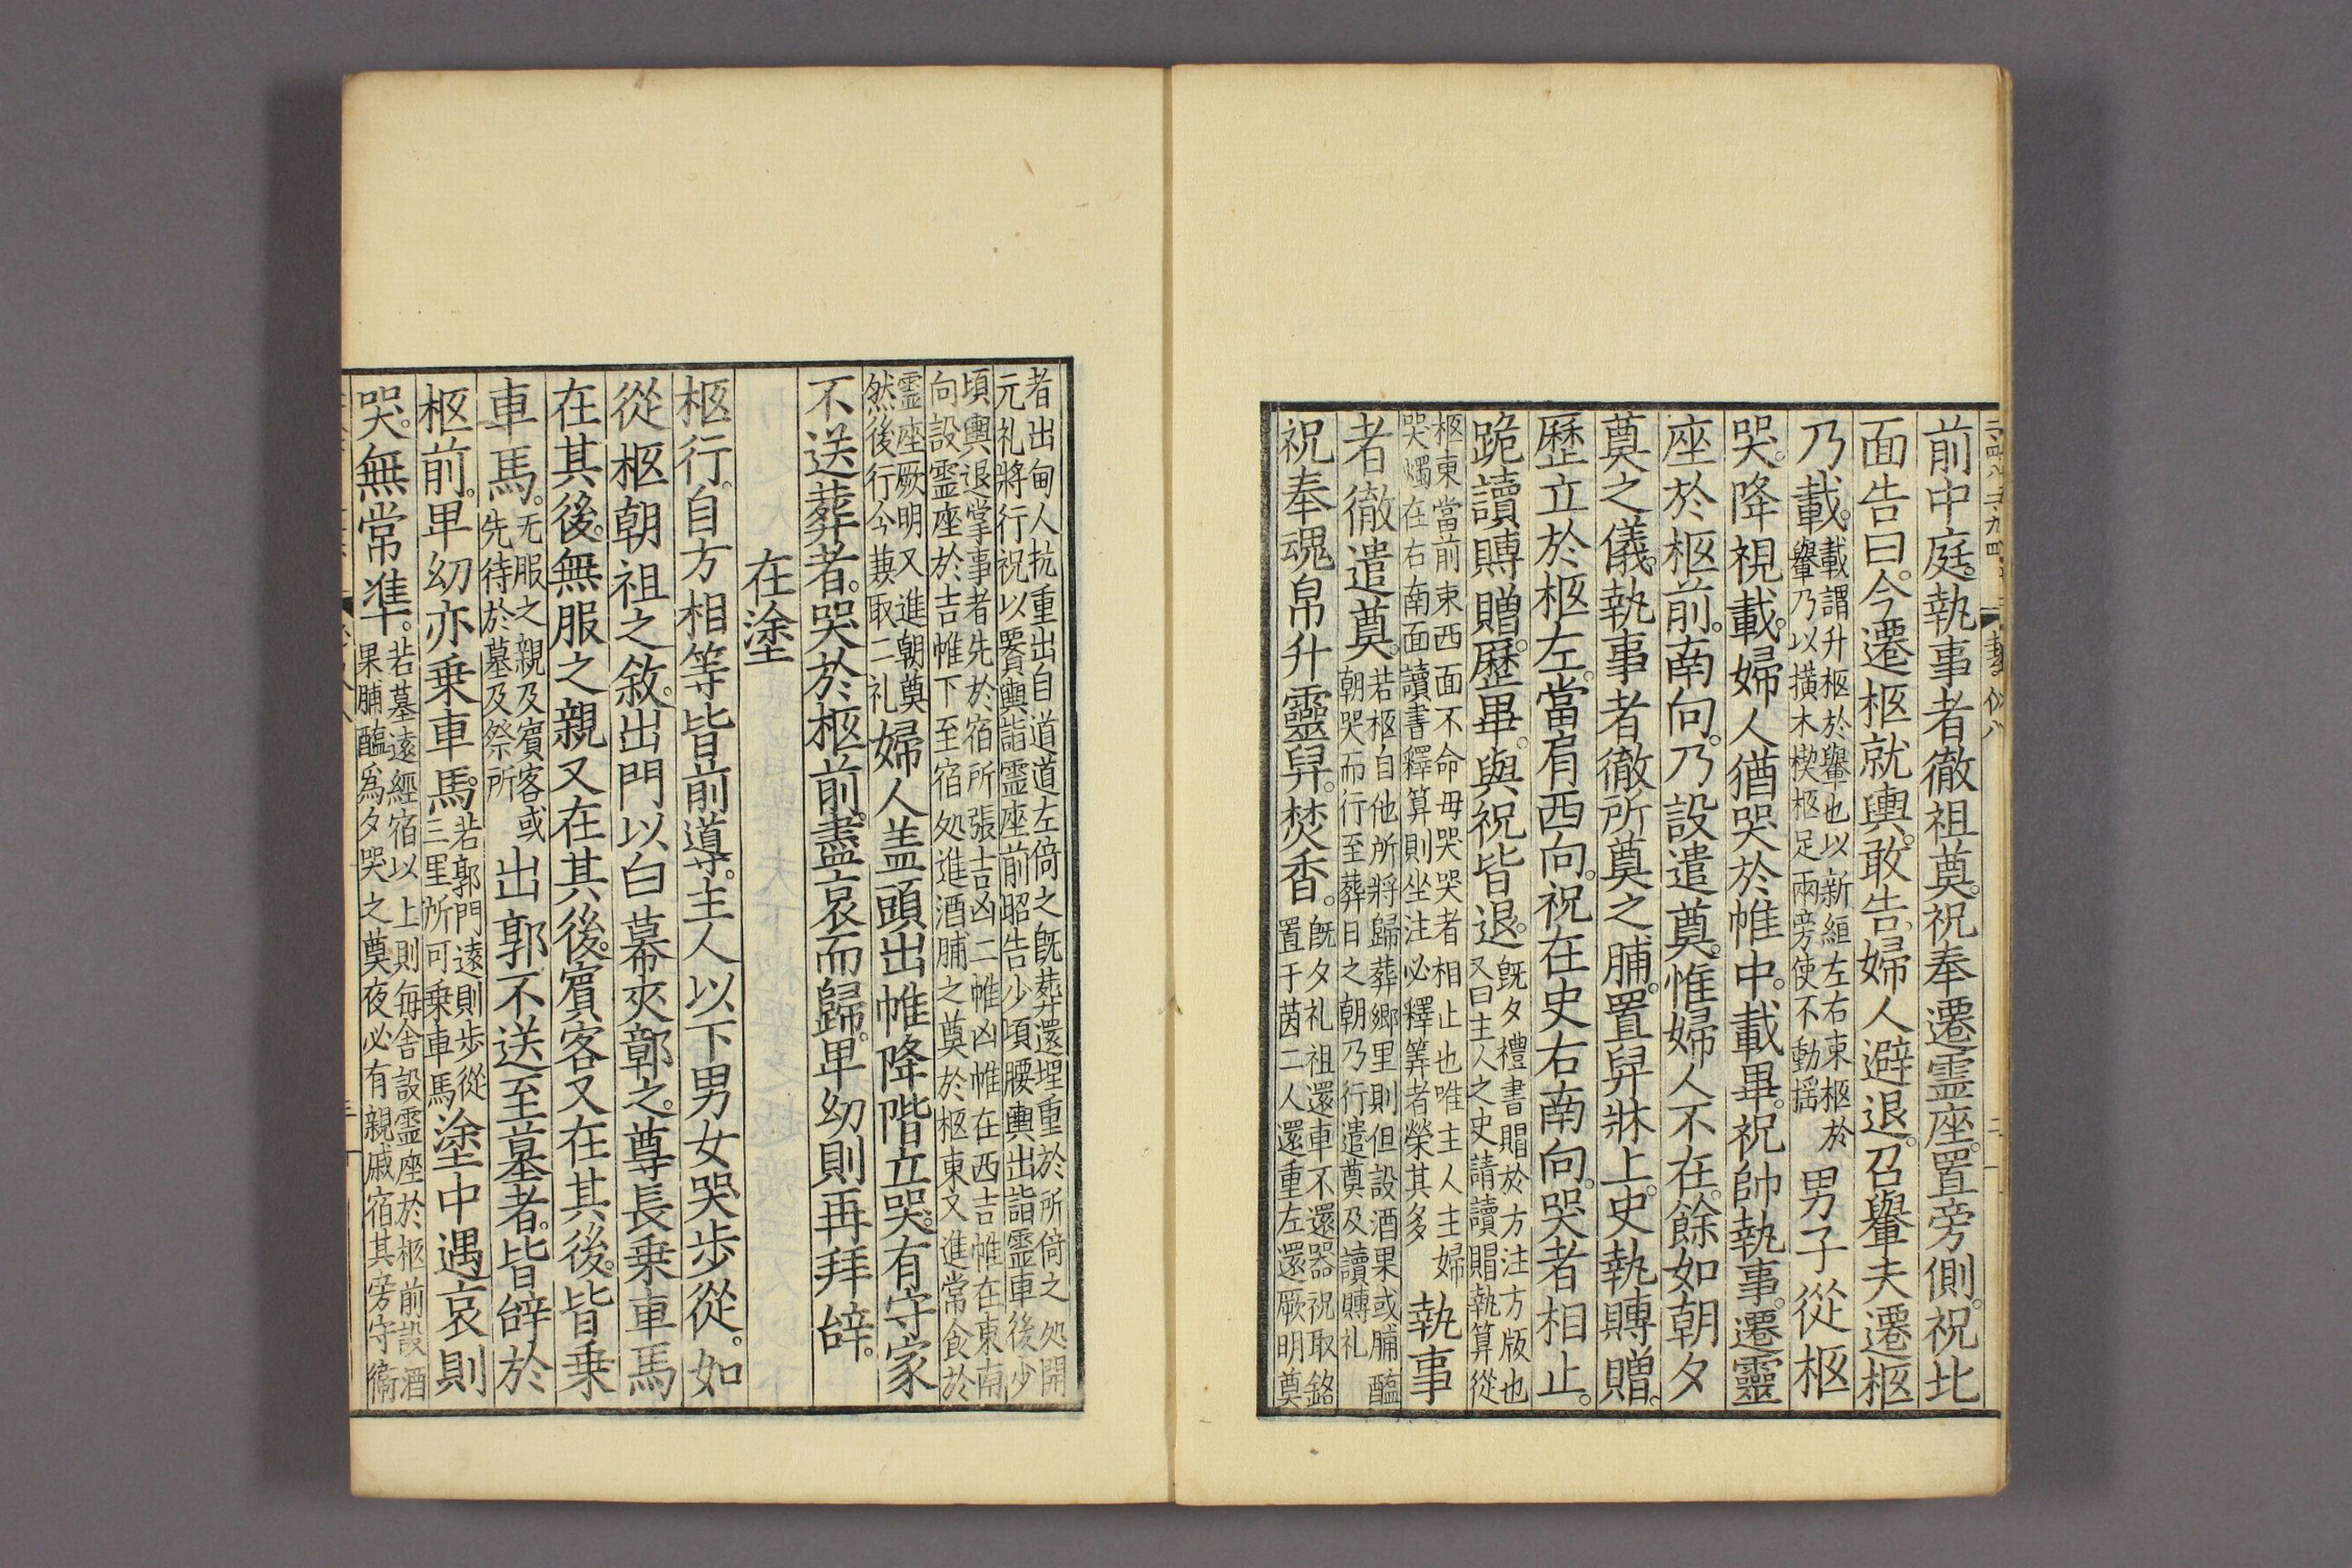 前中庭。執事者徹祖奠。祝奉遷霊座。置旁側。祝北
面告曰。今遷柩就輿。敢告。婦人避退。召轝夫遷柩
乃載。載謂升柩於轝也以新絙左右束柩於
轝乃以横木楔柩足兩旁使不動揺
男子從柩
哭。降視載。婦人猶哭於帷中。載畢。祝帥執事。遷靈
座於柩前。南向。乃設遣奠。惟婦人不在。餘如朝夕
奠之儀。執事者徹所奠之脯。置舁牀上。史執賻贈。
歷立於柩左。當肩西向。祝在史右南向。哭者相止。
跪讀賻贈。歷畢。與祝皆退。既夕禮書賵於方注方版也
又曰主人之史請讀賵執算從
柩東當前束西面不命毋哭哭者相止也唯主人主婦
哭燭在右南面讀書釋算則坐注必釋筭者榮其多
執事
者徹遣奠。若柩自他所將歸葬郷里則但設酒果或脯醢
朝哭而行至葬日之朝乃行遣奠及讀賻礼
祝奉魂帛升靈舁。焚香。既夕礼祖還車不還器祝取銘
置于茵二人還重左還厥明奠
者出甸人抗重出自道道左倚之既葬還埋重於所倚之処開
元礼將行祝以罨輿詣霊座前昭告少頃腰輿出詣霊車後少
頃輿退掌事者先於宿所張吉凶二帷凶帷在西吉帷在東南
向設霊座於吉帷下至宿処進酒脯之奠於柩東又進常食於
霊座厥明又進朝奠
然後行今兼取二礼
婦人盖頭出帷降階立哭。有守家
不送葬者。哭於柩前。盡哀而歸。卑幼則再拜辞。
在塗
柩行。自方相等皆前導。主人以下男女哭歩從。如
從柩朝祖之敘。出門以白幕夾鄣之。尊長乗車馬
在其後。無服之親又在其後。賓客又在其後。皆乗
車馬。无服之親及賓客或
先待於墓及祭所
出郭不送至墓者。皆辞於
柩前。卑幼亦乗車馬。若郭門遠則歩從
三里所可乗車馬
塗中遇哀則
哭。無常準。若墓遠經宿以上則毎舎設霊座於柩前設酒
果脯醢爲夕哭之奠夜必有親戚宿其旁守衞